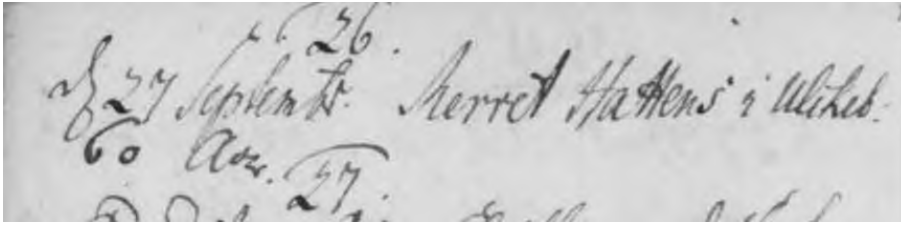 26.
d 27 Septembr. Merret Hattens i Ulkeb.
60 Aar.
27.